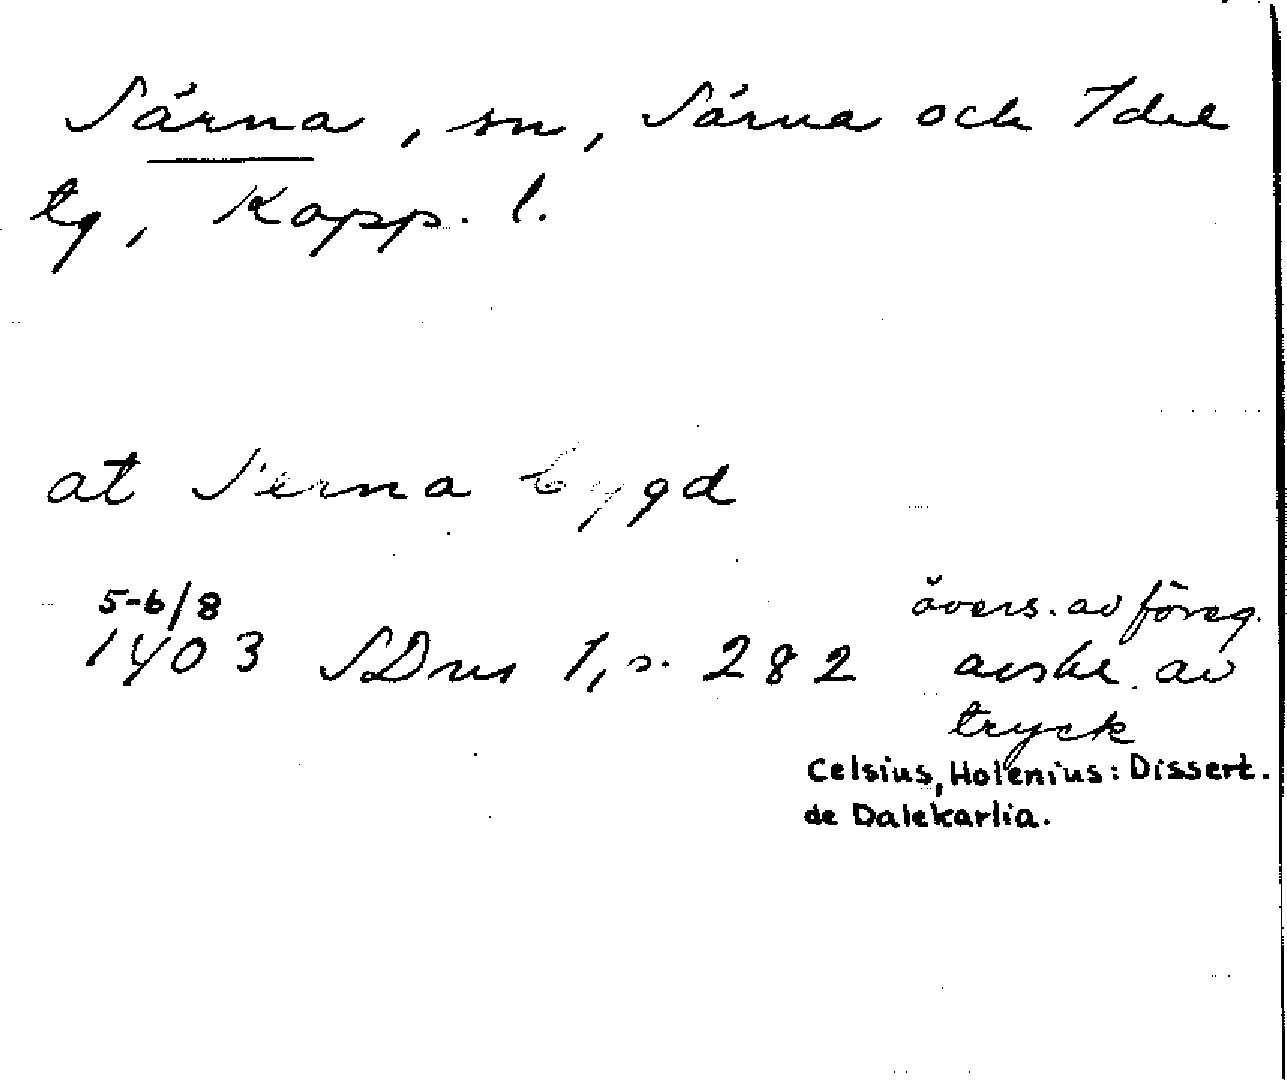 Särna, sn, Särna och Idre
tg, Kopp. l.
at Serna bygd
5-6/8 övers. av föreg.
1403 SDns 1, s. 282 avskr. av
tryck
Celsius, Holenius: Dissert.
de Dalekarlia.